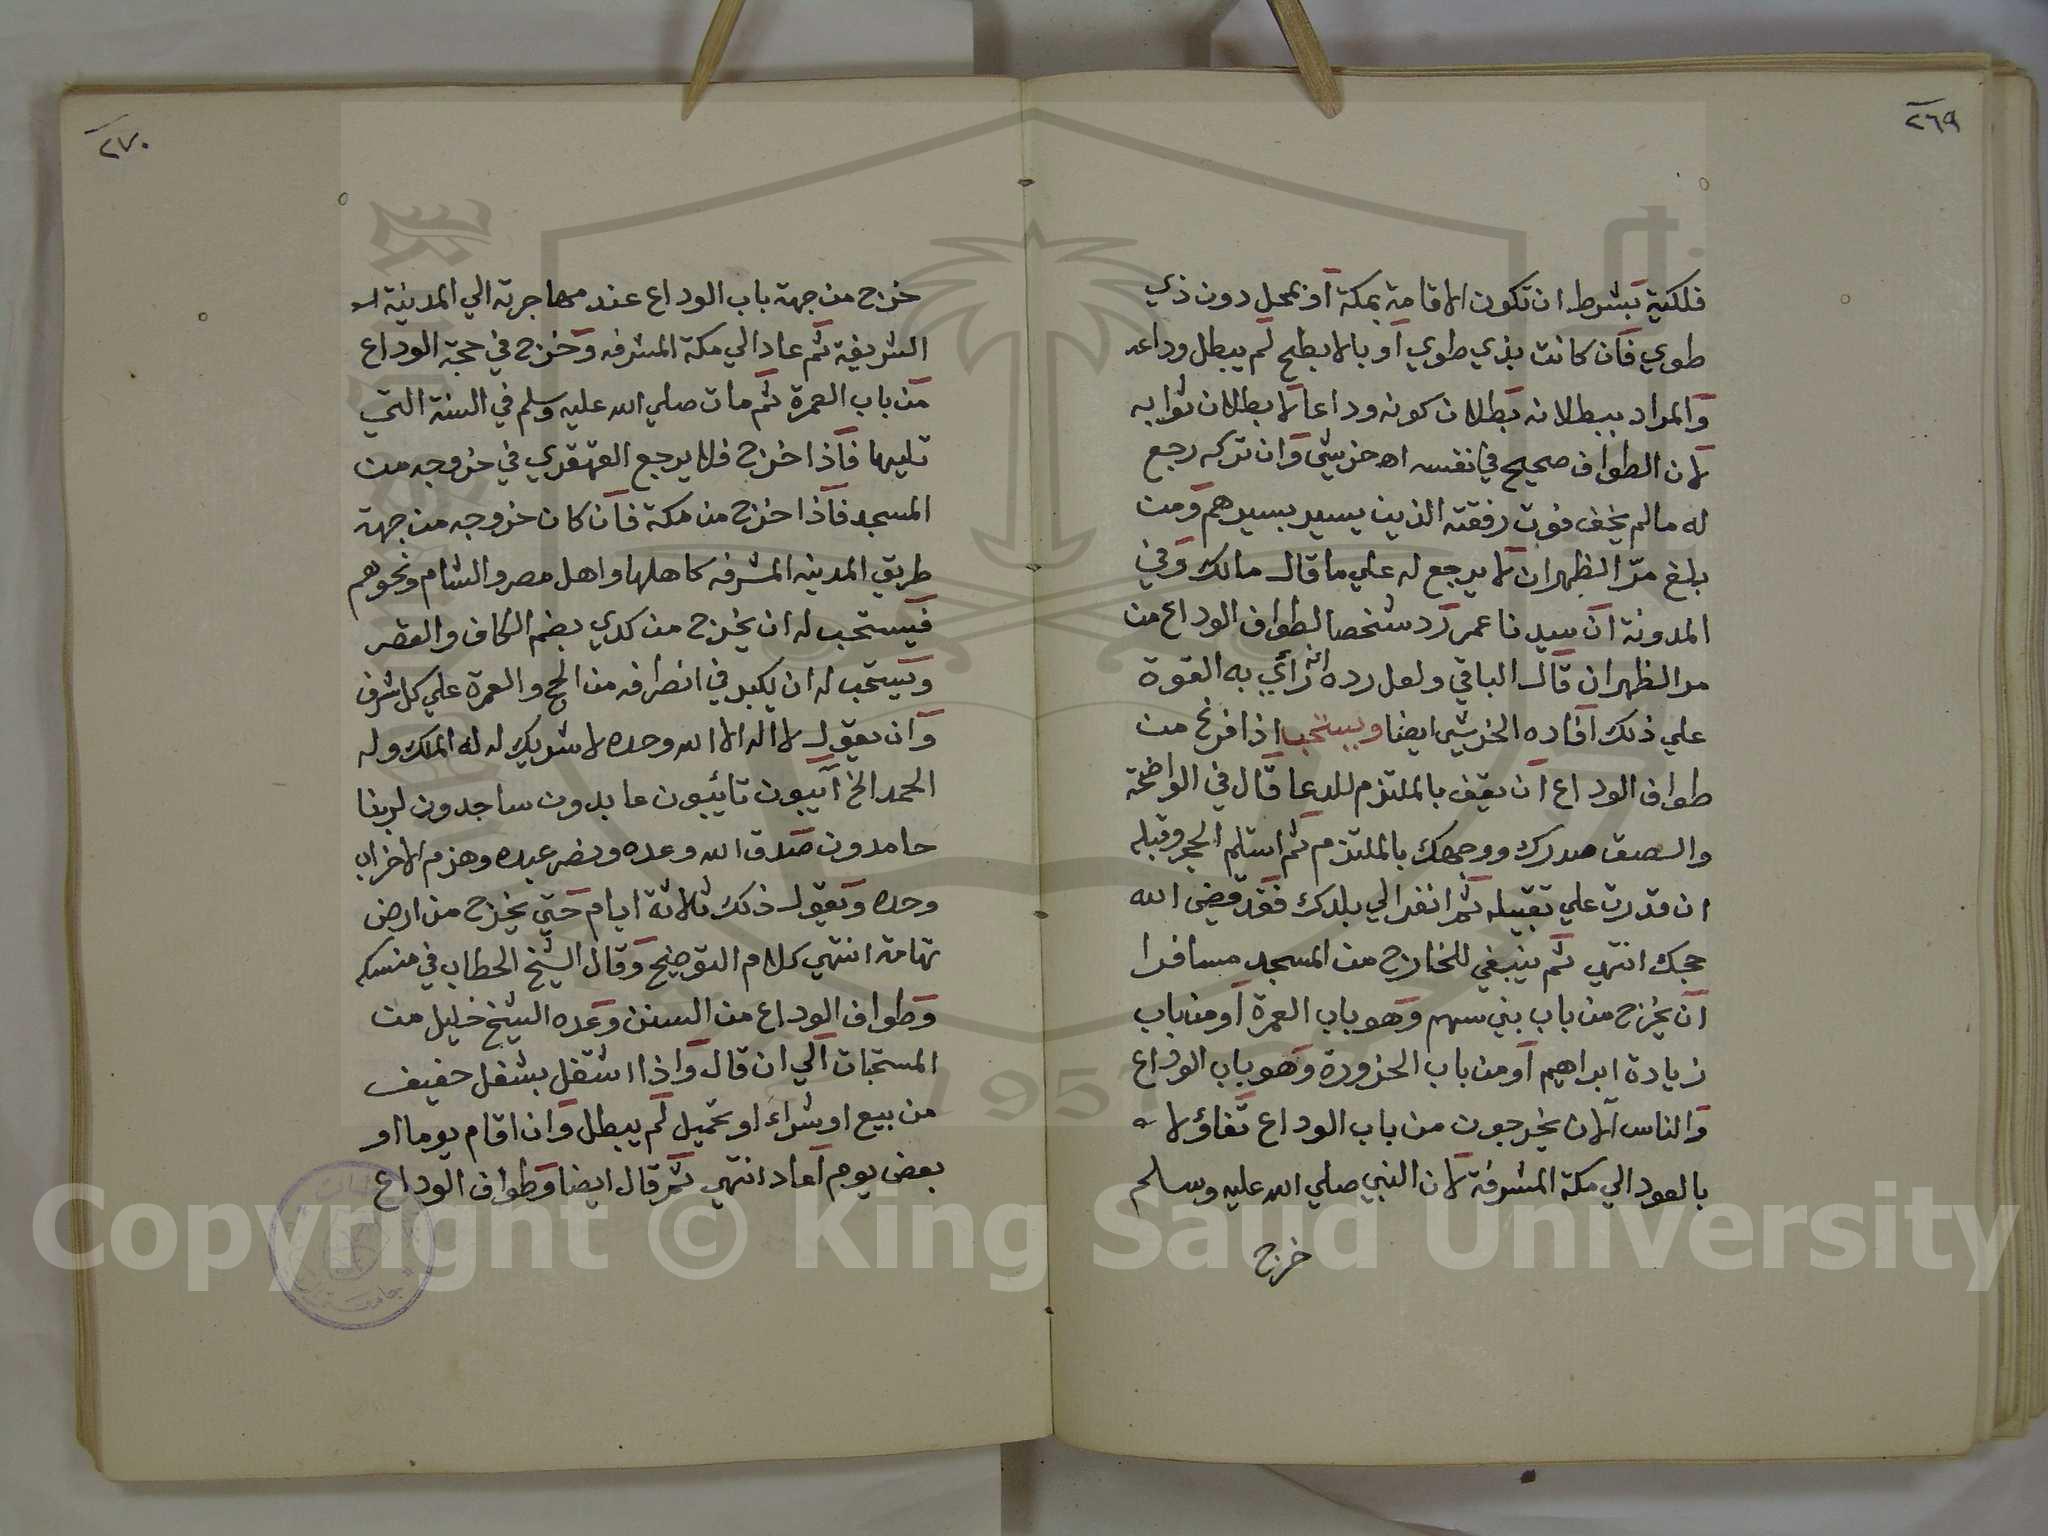 ٢٦٩
فلكية بشرط ان تكون الاقامة بمكة او بمحل دون ذي
طوي فان كانت بذي طوي او بالابطح لم يبطل وداعه
والمراد ببطلانه بطلان كونه وداعا لا بطلان ثوابه
لان الطواف صحيح في نفسه اه خرشي وان تركه رجع
له مالم يخف فوت رفقته الذين يسير بسيرهم ومن
بلغ مر الظهران لا يرجع له علي ما قال مالك وفي
المدونة ان سيدنا عمر رد شخصا لطواف الوداع من
مر الظهران قال الباقي ولعل رده انه رأي به القوة
علي ذلك افاده الخرشي ايضا ويستحب اذا فرغ من
طواف الوداع ان يقف بالملتزم للدعا قال في الواضحة
والصق صدرك ووجهك بالملتزم ثم استلم الحجر وقبله
ان قدرت علي تقبيله ثم انفر الي بلدك فقد قضي الله
حجك انتهي ثم ينبغي للخارج من المسجد مسافرا
ان يخرج من باب بني سهم وهو باب العمرة او من باب
زيادة ابراهيم او من باب الحزورة وهو باب الوداع
والناس الان يخرجون من باب الوداع تفاؤلا
بالعود الي مكة المشرفة لان النبي صلي الله عليه وسلم
خرج
٢٧٠
خرج من جهة باب الوداع عند مهاجرته الي المدينة الـ
الشريفة ثم عاد الي مكة المشرفه وخرج في حجة الوداع
من باب العمرة ثم مات صلي الله عليه وسلم في السنة التي
تليها فاذا خرج فلا يرجع القهقري في خروجه من
المسجد فاذا خرج من مكة فان كان خروجه من جهة
طريق المدينه المشرفه كاهلها واهل مصر والشام ونحوهم
فيستحب له ان يخرج من كدي بضم الكاف والقصر
ويستحب له ان يكبر في انصرافه من الحج والعمرة علي كل شرف
وان يقول لا اله الا الله وحده لا شريك له له الملك وله
الحمد الخ آيبون تائبون عابدون ساجدون لربنا
حامدون صدق الله وعده ونصر عبده وهزم الاحزاب
وحده ويقول ذلك ثلاثة ايام حتي يخرج من ارض
تهامة انتهي كلام التوضيح وقال الشيخ الحطاب في منسكه
وطواف الوداع من السنن وعده الشيخ خليل من
المستحبات الي ان قال واذا اشتغل بشغل خفيف
من بيع او شراء او تحميل لم يبطل وان اقام يوما او
بعض يوم اعاد انتهي ثم قال ايضا وطواف الوداع
Copyright © King Saud University
1957